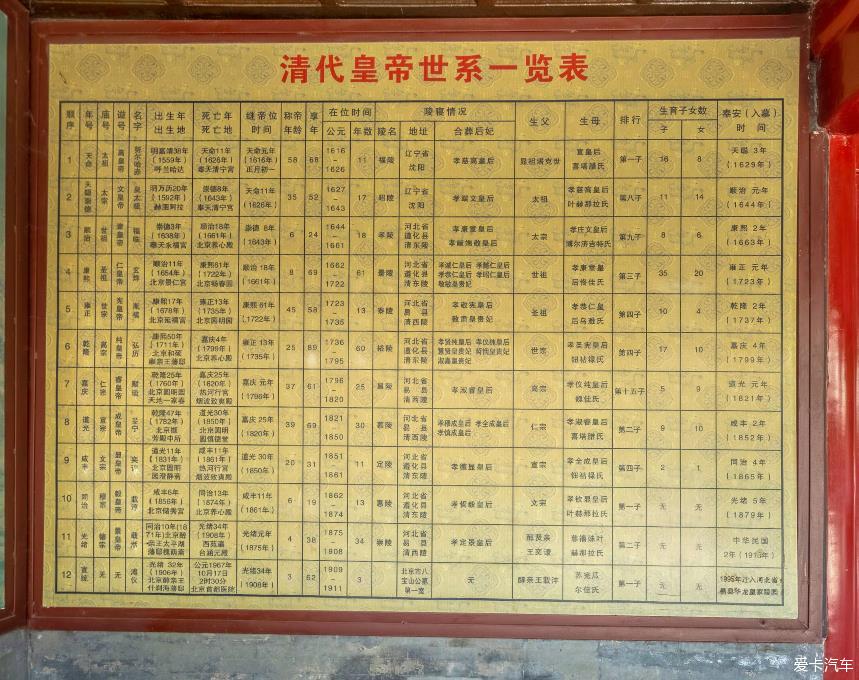 清代皇帝世系一览表
顺序 年号 庙号 谥号 名字 出生年 出生地 死亡年 死亡地 继帝位时间 称帝年龄 享年 在位时间 公元 年数 陵寝情况 陵名 地址 合葬后妃 生父 生母 排行 生育子女数 子 女 奉安（入墓）时间
1 天命 太祖 高皇帝 努尔哈赤 明嘉靖38年（1559年）呼兰哈达 天命11年（1626年）奉天清宁宫 天命元年（1616年）正月初一 58 68 1616－1626 11 福陵 辽宁省沈阳 孝慈高皇后 显祖塔克世 宣皇后喜塔腊氏 第一子 16 8 天聪 3年（1629年）
2 天聪崇德 太宗 文皇帝 皇太极 明万历20年（1592年）赫图阿拉 崇德8年（1643年）奉天清宁宫 天命11年（1626年） 35 52 1627－1643 17 昭陵 辽宁省沈阳 孝端文皇后 太祖 孝慈高皇后叶赫那拉氏 第八子 11 14 顺治 元年（1644年）
3 顺治 世祖 章皇帝 福临 崇德3年（1638年）奉天永福宫 顺治18年（1661年）北京养心殿 崇德 8年（1643年） 6 24 1644－1661 18 孝陵 河北省遵化县清东陵 孝康章皇后 孝献端敬皇后 太宗 孝庄文皇后博尔济吉特氏 第九子 8 6 康熙 2年（1663年）
4 康熙 圣祖 仁皇帝 玄烨 顺治11年（1654年）北京景仁宫 康熙61年（1722年）北京畅春园 顺治 18年（1661年） 8 69 1662－1722 61 景陵 河北省遵化县清东陵 孝诚仁皇后 孝懿仁皇后 孝恭仁皇后 孝昭仁皇后 敬敏皇贵妃 世祖 孝康章皇后佟佳氏 第三子 35 20 雍正 元年（1723年）
5 雍正 世宗 宪皇帝 胤禛 康熙17年（1678年）北京 雍正13年（1735年）北京圆明园 康熙 61年（1722年） 45 58 1723－1735 13 泰陵 河北省易 县清西陵 孝敬宪皇后 敦肃皇贵妃 圣祖 孝恭仁皇后乌雅氏 第四子 10 4 乾隆 2年（1737年）
6 乾隆 高宗 纯皇帝 弘历 康熙50年（1711年）北京和硕雍亲王藩邸 嘉庆4年（1799年）北京养心殿 雍正 13年（1735年） 25 89 1736－1795 60 裕陵 河北省遵化县清东陵 孝贤纯皇后 孝仪纯皇后 慧贤皇贵妃 哲悯皇贵妃 淑嘉皇贵妃 世宗 孝圣宪皇后钮祜禄氏 第四子 17 10 嘉庆 4年（1799年）
7 嘉庆 仁宗 睿皇帝 乾隆25年（1760年）北京圆明园天地一家春 嘉庆25年（1820年）热河行宫烟波致爽殿 嘉庆 元年（1796年） 37 61 1796－1820 25 昌陵 河北省易 县清西陵 孝淑睿皇后 高宗 孝仪纯皇后魏佳氏 第十五子 5 9 道光 元年（1821年）
8 道光 宣宗 成皇帝 旻宁 乾隆47年（1782年）北京撷芳殿中所 道光30年（1850年）北京圆明园慎德堂 嘉庆 25年（1820年） 39 69 1821－1850 30 慕陵 河北省易 县清西陵 孝穆成皇后 孝全成皇后 孝慎成皇后 仁宗 孝淑睿皇后喜塔腊氏 第二子 9 10 咸丰 2年（1852年）
9 咸丰 文宗 显皇帝 奕詝 道光11年（1831年）北京圆明园澄静斋 咸丰11年（1861年）热河行宫烟波致爽殿 道光 30年（1850年） 20 31 1851－1861 11 定陵 河北省遵化县清东陵 孝德显皇后 宣宗 孝全成皇后钮祜禄氏 第四子 2 1 同治 4年（1865年）
10 同治 穆宗 毅皇帝 载淳 咸丰6年（1856年）北京储秀宫 同治13年（1874年）北京养心殿 咸丰11年（1861年） 6 19 1862－1874 13 惠陵 河北省遵化县清东陵 孝哲毅皇后 文宗 孝钦显皇后叶赫那拉氏 第一子 无 无 光绪 5年（1879年）
11 光绪 德宗 景皇帝 载湉 同治10年(1871年)北京醇亲王太平湖藩邸槐荫斋 光绪34年（1908年）西苑瀛台涵元殿 光绪元年（1875年） 4 38 1875－1908 34 崇陵 河北省易 县清西陵 孝定景皇后 醇贤亲王奕譞 叶赫那拉氏 第二子 无 无 中华民国2年（1913年）
12 宣统 无 无 溥仪 光绪 32年（1906年）北京醇亲王什刹海藩邸 公元1967年10月17日2时30分北京首都医院 光绪34年（1908年） 3 62 1909－1911 3 北京市八宝山公墓第一室 无 醇亲王载沣 苏完瓜尔佳氏 第一子 无 无 1995年迁入河北省易县华龙皇家陵园
爱卡汽车